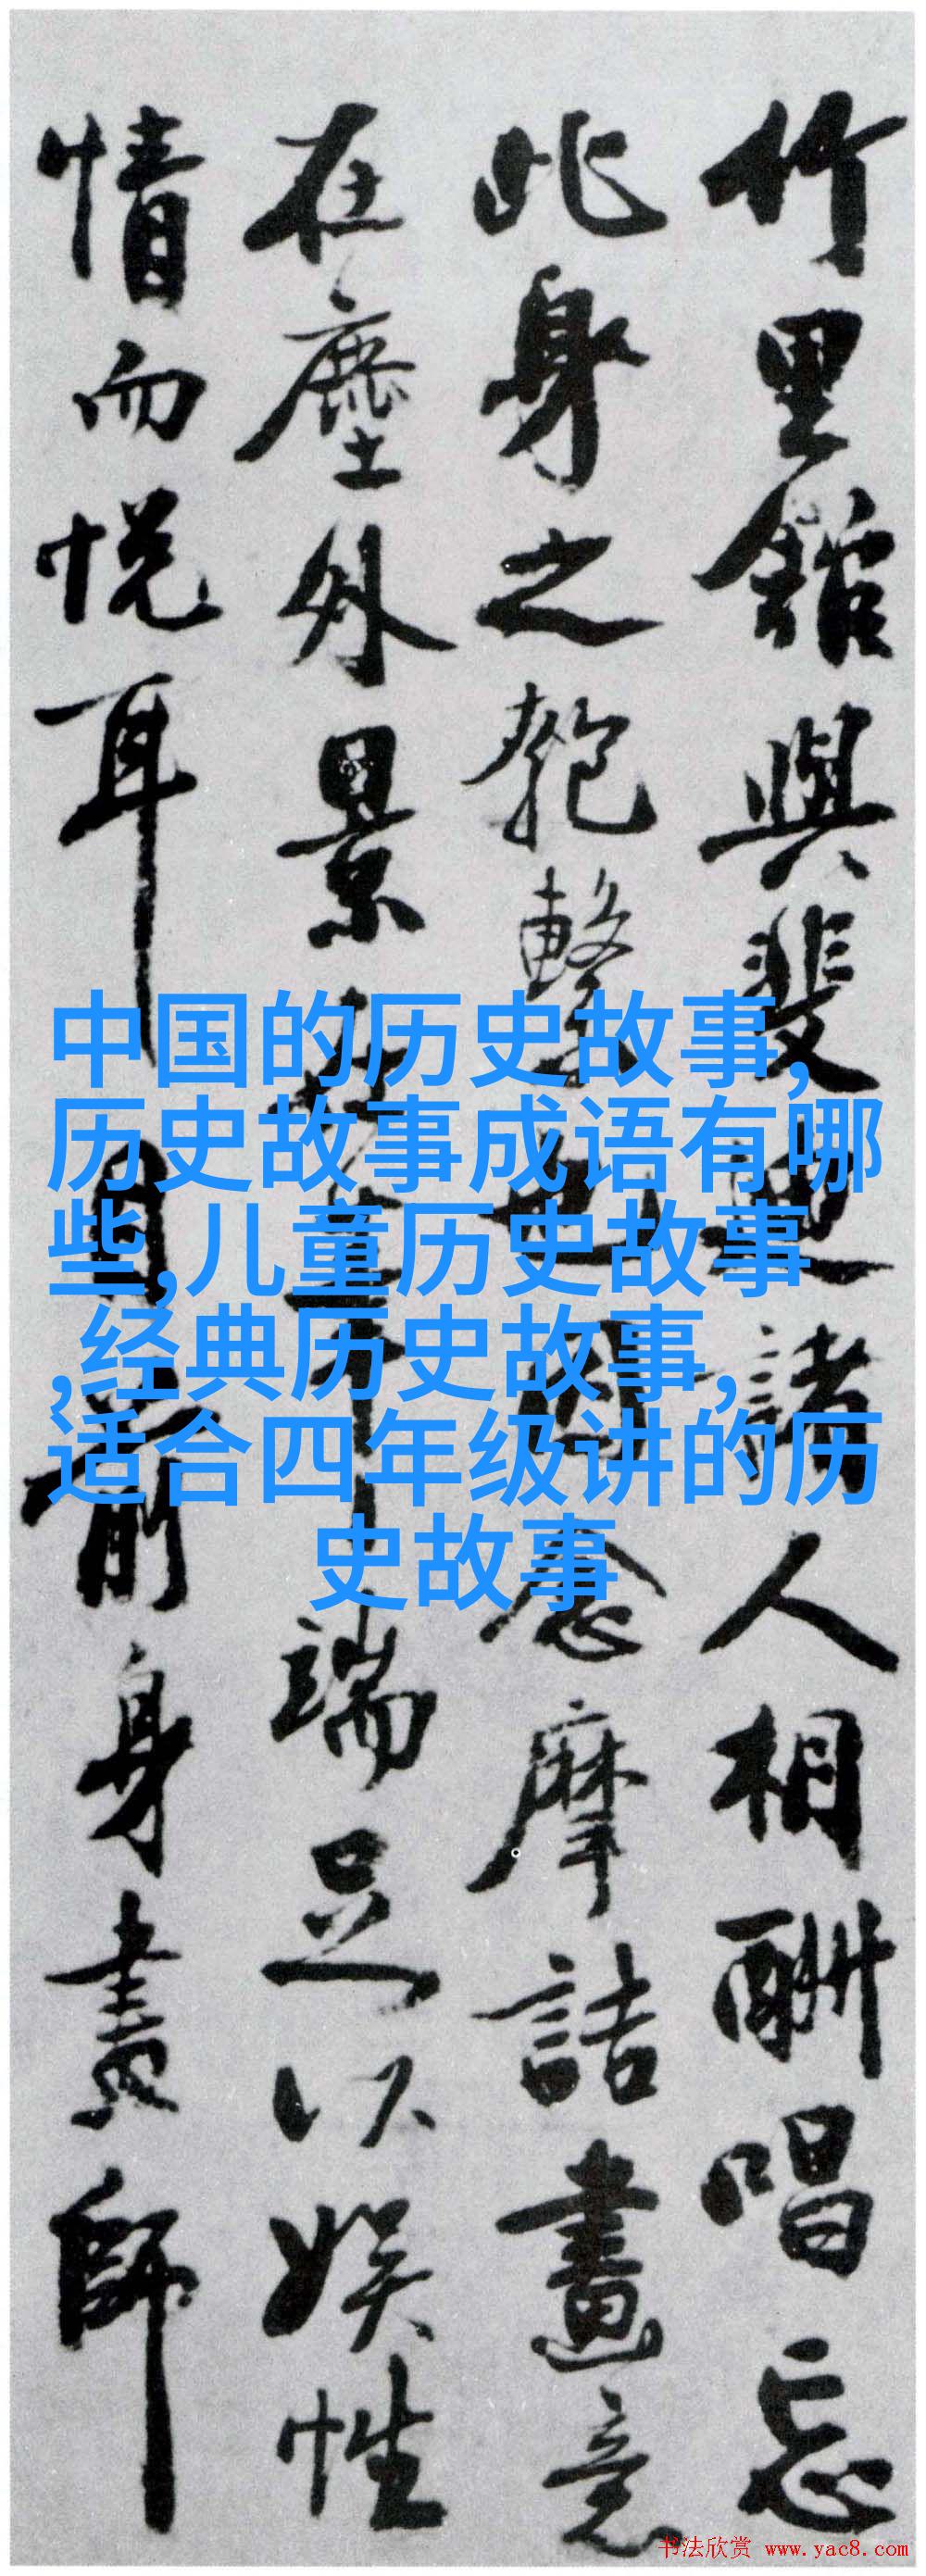 竹里館與斐迪諸人相酬唱忘
此身之匏繫也因念摩詰畫意
在塵外景
端足以娱性
情而悦耳目前身畫師
中国的历史故事,
历史故事成语有哪
些,儿童历史故事
,经典历史故事,
适合四年级讲的历
史故事
书法欣赏 www.yac8.com